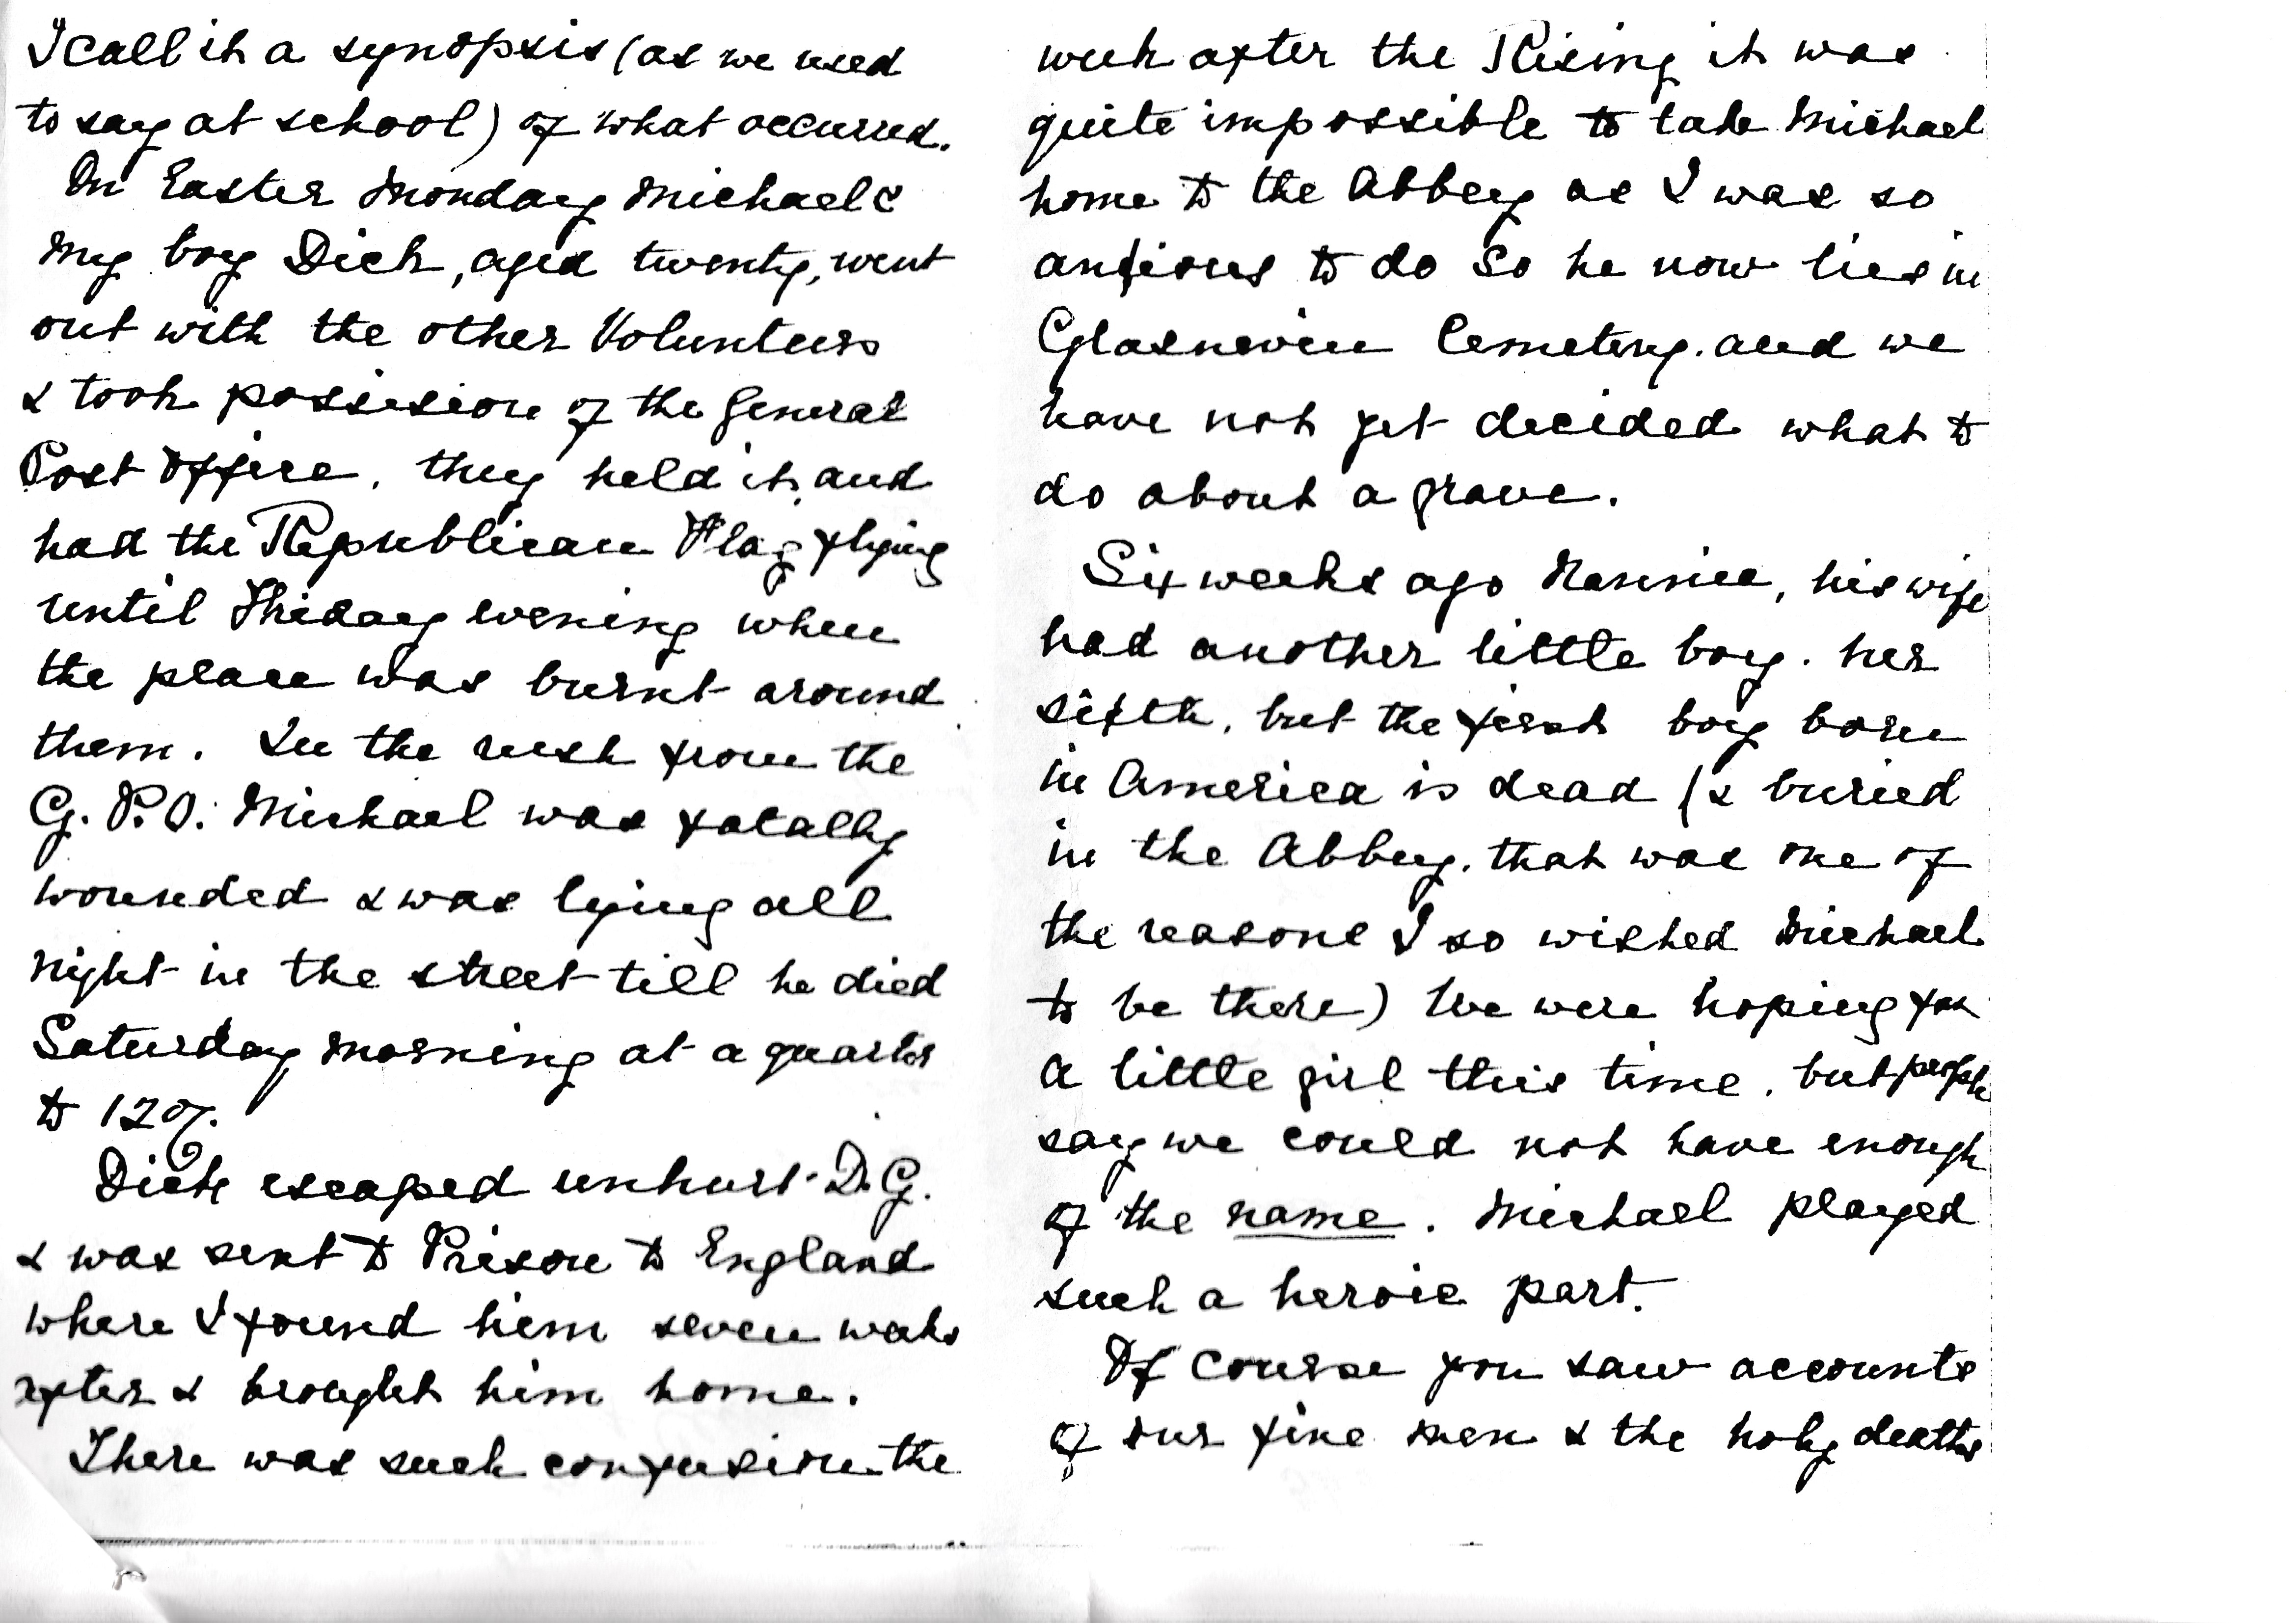 I call it a synopsis (as we used
to say at school) of what occurred.
On Easter Monday Michael &
my boy Dick, aged twenty, went
out with the other Volunteers
& took possession of the General
Post Office, they held it, and
had the Republican Flag flying
until Friday evening when
the place was burnt around
them. In the rush from the
G. P. O. Michael was fatally
wounded & was lying all
night in the street till he died
Saturday morning at a quarter
to 12 o/c.
Dick escaped unhurt D. G.
& was sent to Prison to England
where I found him seven weeks
after & brought him home.
There was such confusion the
week after the Rising it was
quite impossible to take Michael
home to the Abbey as I was so
anxious to do so he now lies in
Glasnevin Cemetery. and we
have not yet decided what to
do about a grave.
Six weeks ago Nannie, his wife
had another little boy. her
sixth, but the first boy born
in America is dead (& buried
in the Abbey. that was one of
the reasons I so wished Michael
to be there) We were hoping for
a little girl this time, but people
say we could not have enough
of the name. Michael played
such a heroic part.
Of course you saw accounts
of our fine men & the holy deaths